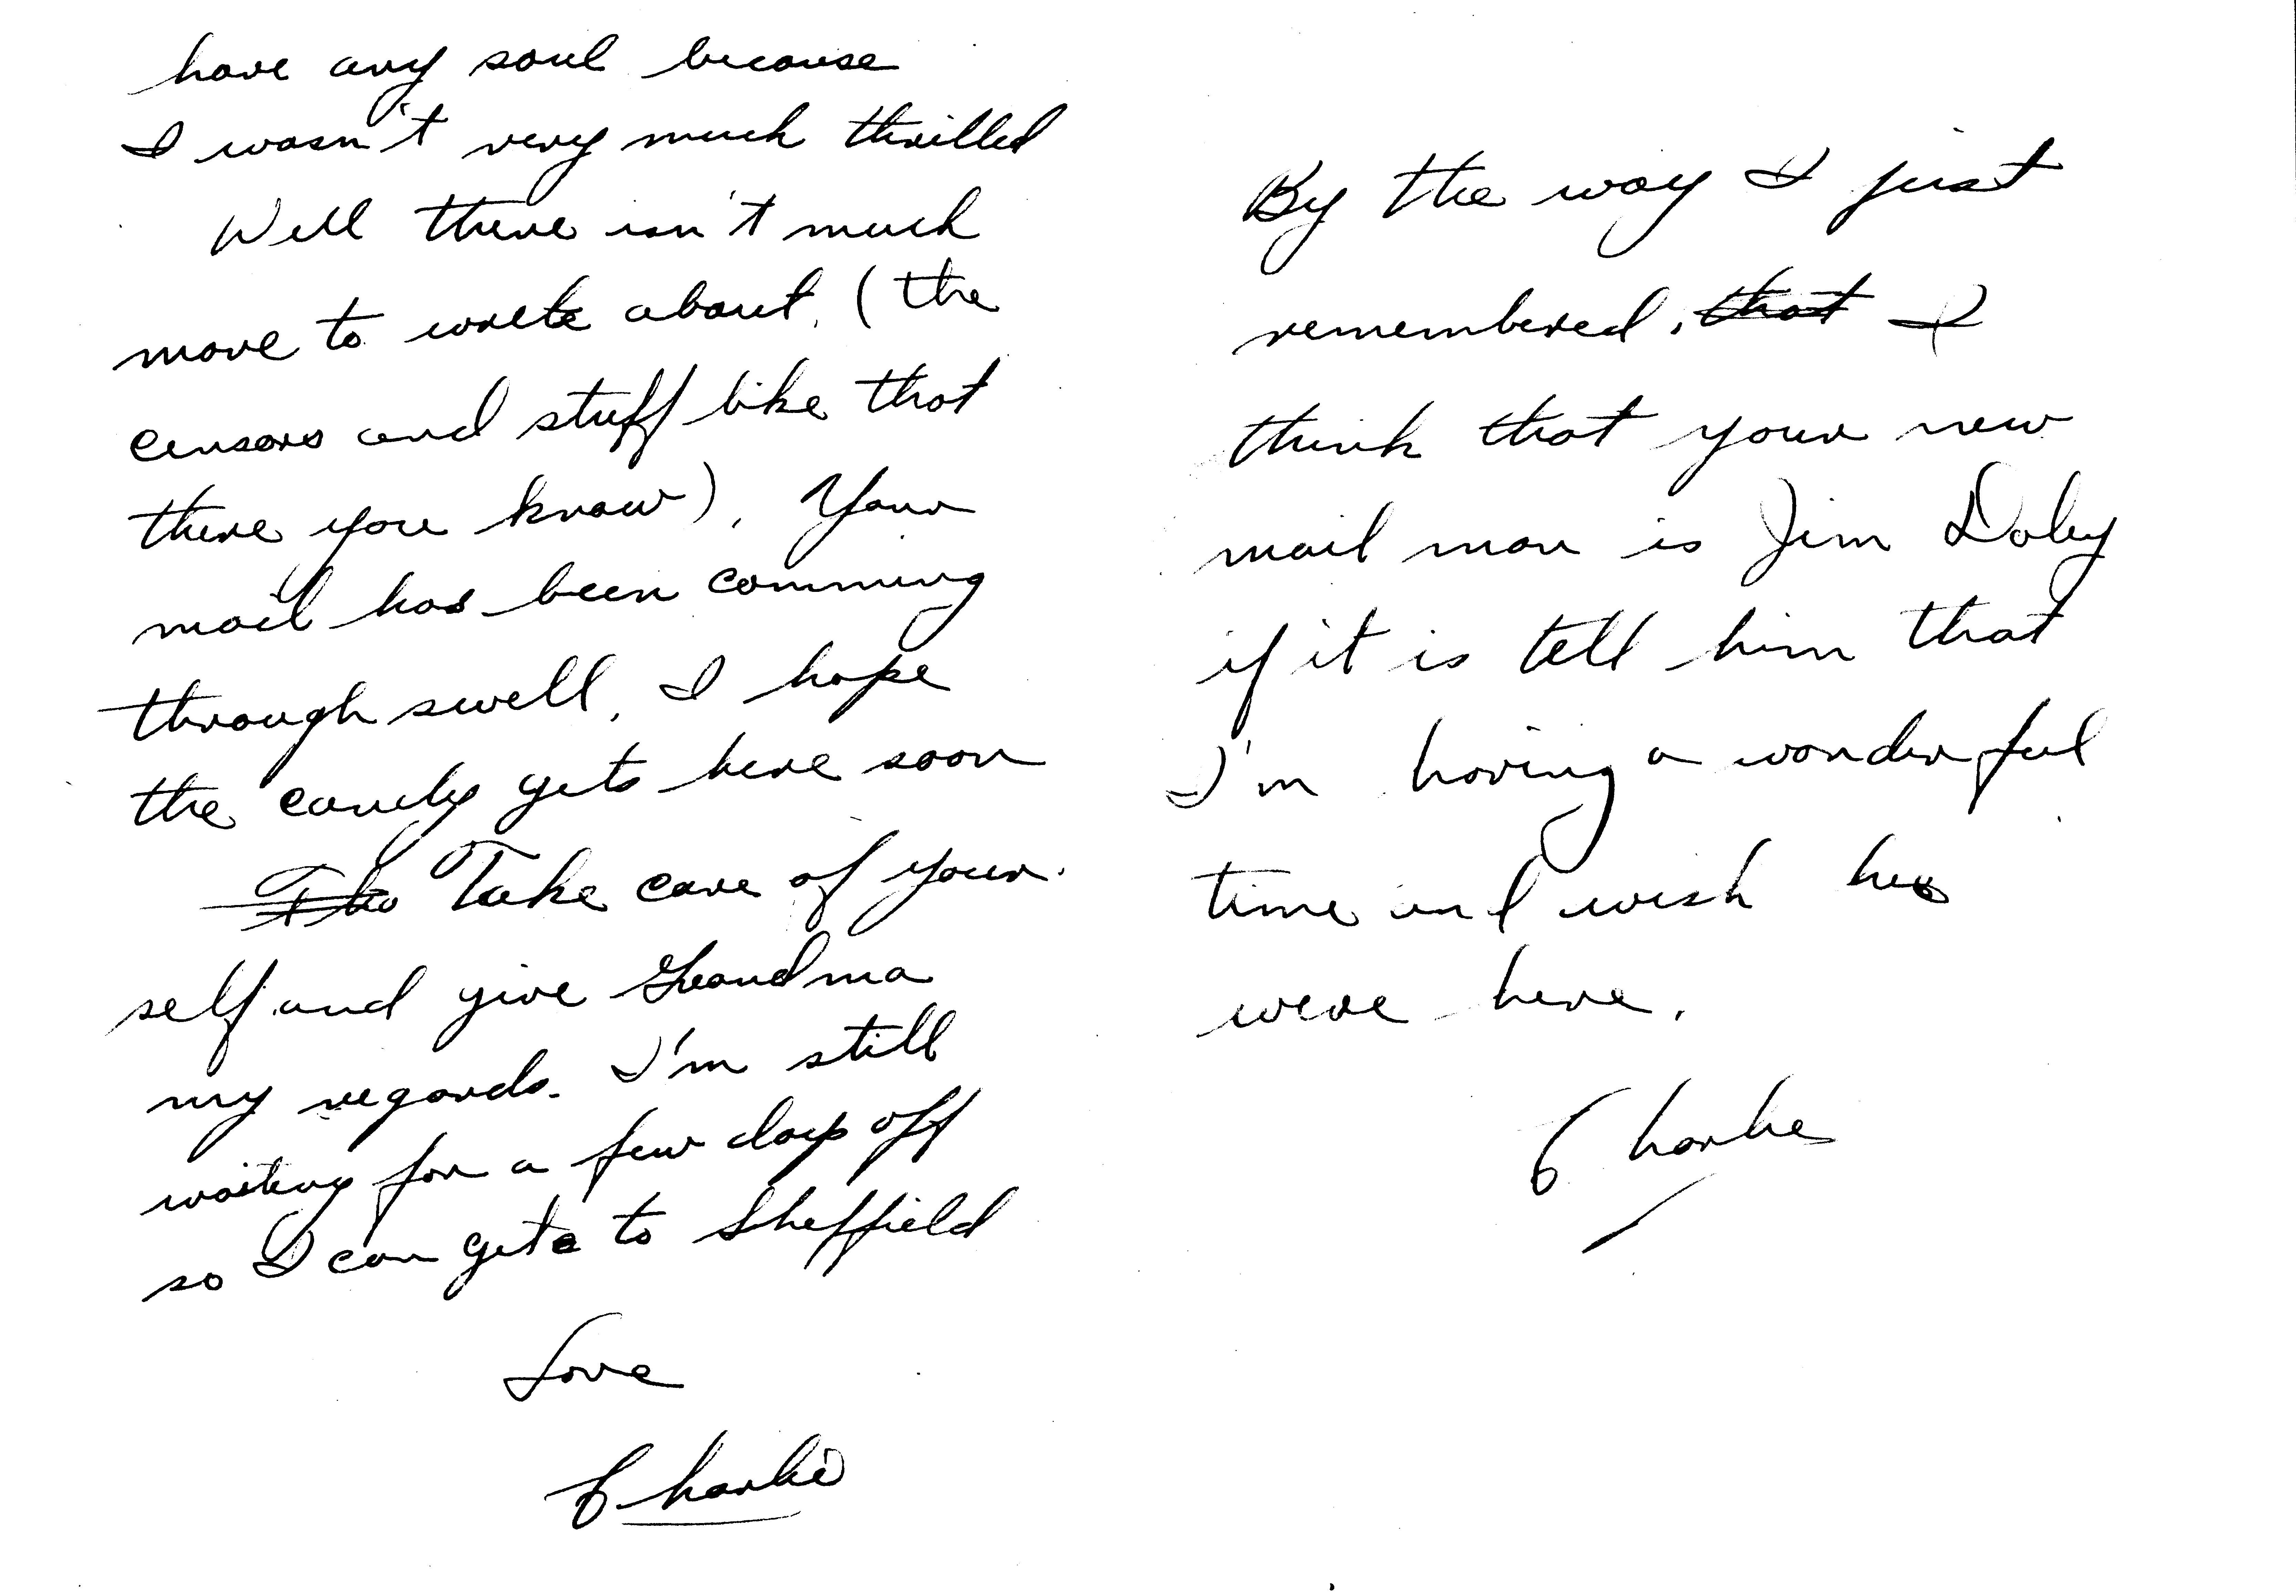 have any soul because
I wasn't very much thrilled
Well there isn't much
more to write about. (the
censors and stuff like that
there you know). Your
mail has been comming
through swell. I hope
the candy gets here soon
Take care of your
self and give Grandma
my regards. I'm still
waiting for a few days off
so I can get to Sheffield
Love
Charlie
By the way I just
remembered, that I
think that your new
mail man is Jim Doley
if it is tell him that
I'm having a wonderful
time and wish he
were here.
Charlie